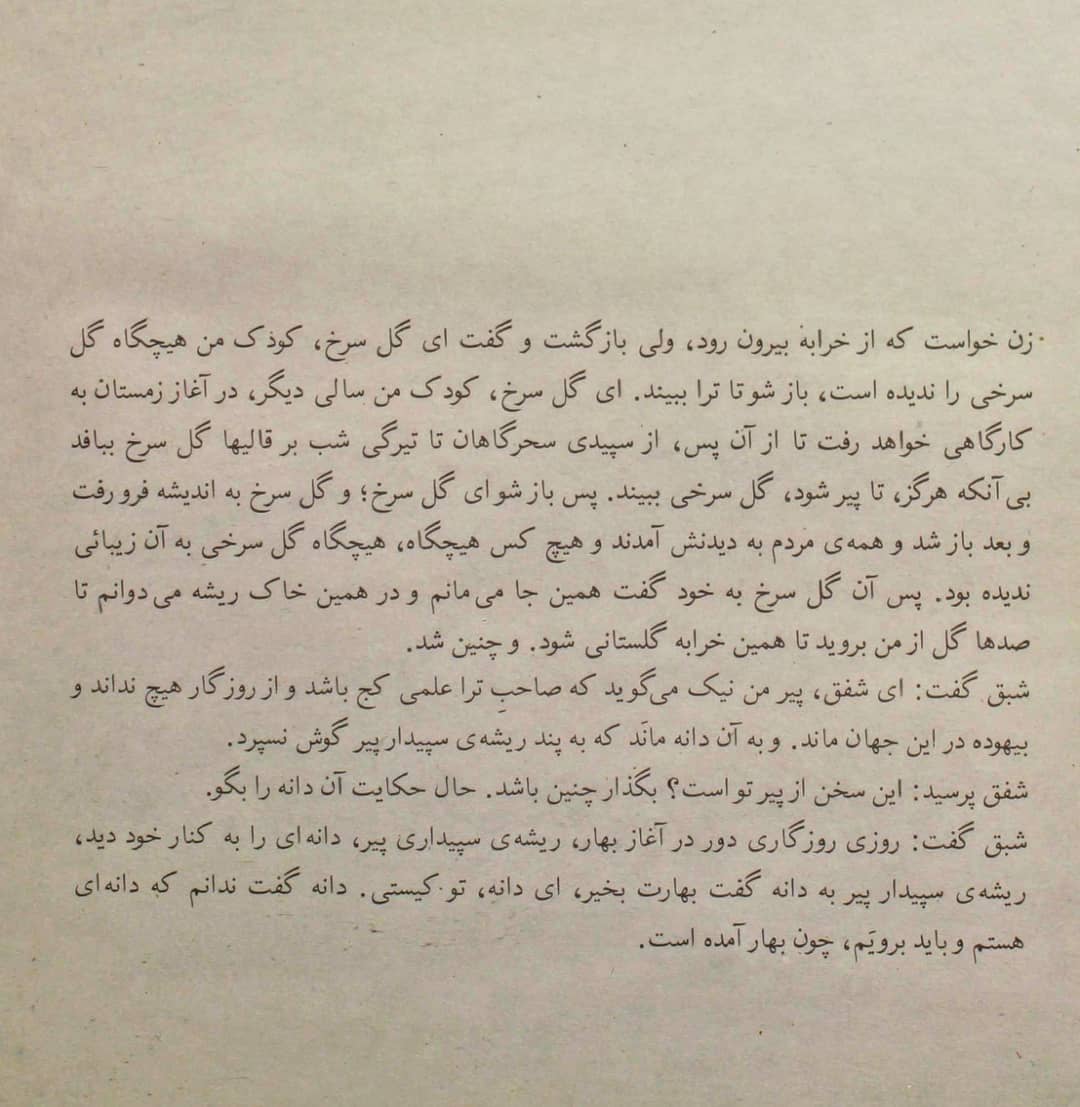 زن خواست که از خرابه بیرون رود، ولی بازگشت و گفت ای گل سرخ، کودک من هیچگاه گل
سرخی را ندیده است، باز شو تا ترا ببیند. ای گل سرخ، کودک من سالی دیگر، در آغاز زمستان به
کارگاهی خواهد رفت تا از آن پس، از سپیدی سحرگاهان تا تیرگی شب بر قالیها گل سرخ ببافد
بی‌آنکه هرگز، تا پیر شود، گل سرخی ببیند. پس باز شو ای گل سرخ؛ و گل سرخ به اندیشه فرو رفت
و بعد باز شد و همه‌ی مردم به دیدنش آمدند و هیچ کس هیچگاه، هیچگاه گل سرخی به آن زیبائی
ندیده بود. پس آن گل سرخ به خود گفت همین جا می‌مانم و در همین خاک ریشه می‌دوانم تا
صدها گل از من بروید تا همین خرابه گلستانی شود. و چنین شد.
شبق گفت: ای شفق، پیر من نیک می‌گوید که صاحبِ ترا علمی کج باشد و از روزگار هیچ نداند و
بیهوده در این جهان ماند. و به آن دانه مانَد که به پند ریشه‌ی سپیدار پیر گوش نسپرد.
شفق پرسید: این سخن از پیر تو است؟ بگذار چنین باشد. حال حکایت آن دانه را بگو.
شبق گفت: روزی روزگاری دور در آغاز بهار، ریشه‌ی سپیداری پیر، دانه‌ای را به کنار خود دید،
ریشه‌ی سپیدار پیر به دانه گفت بهارت بخیر، ای دانه، تو کیستی. دانه گفت ندانم که دانه‌ای
هستم و باید برویَم، چون بهار آمده است.